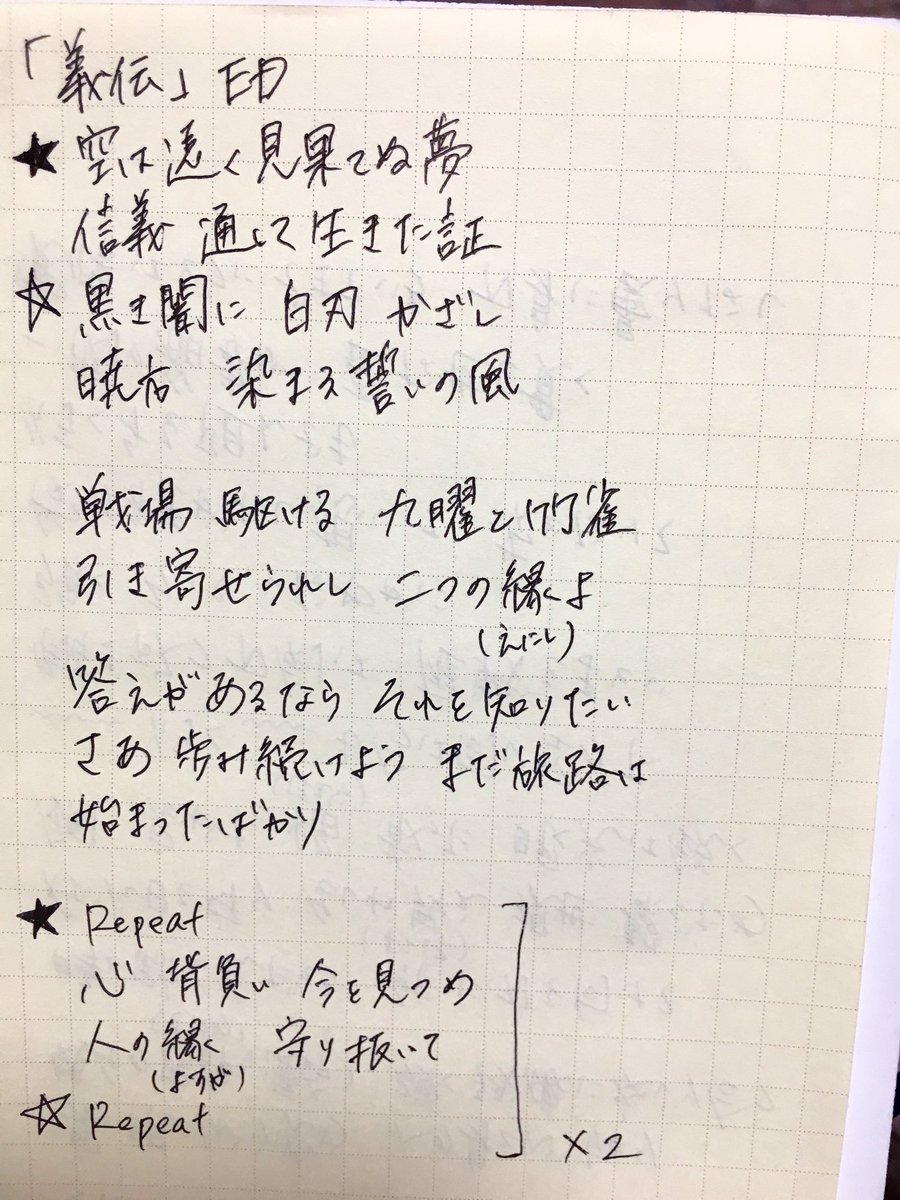 「義伝」ED
★ 空は遠く見果てぬ夢
信義 通して生きた証
☆ 黒き闇に 白刃 かざし
暁右 染まる誓いの風
戦場 駆ける 九曜と竹雀
引き寄せられし 二つの縁よ
(えにし)
答えがあるなら それを知りたい
さあ 歩み続けよう まだ旅路は
始まったばかり
★ Repeat
心 背負い 今を見つめ
人の縁 守り抜いて
(よすが)
☆ Repeat
×2